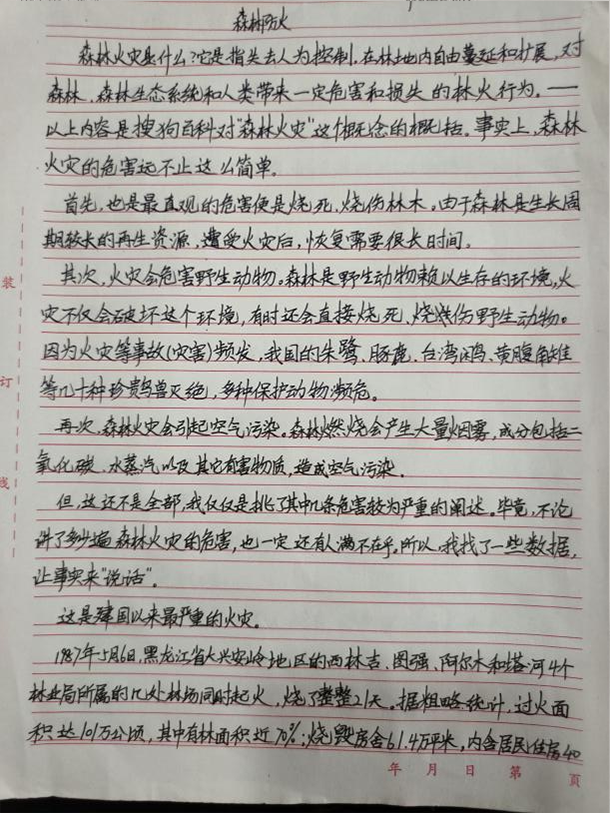 森林防火
森林火灾是什么?它是指失去人为控制,在林地内自由蔓延和扩展,对
森林、森林生态系统和人类带来一定危害和损失的林火行为。——
以上内容是搜狗百科对“森林火灾”这个概念的概括。事实上,森林
火灾的危害远不止这么简单。
首先,也是最直观的危害便是烧死、烧伤林木。由于森林是生长周
期较长的再生资源,遭受火灾后,恢复需要很长时间。
其次,火灾会危害野生动物。森林是野生动物赖以生存的环境,火
灾不仅会破坏这个环境,有时还会直接烧死、烧伤野生动物。
因为火灾等事故(灾害)频发,我国的朱鹭、豚鹿、台湾闲鸟、黄腹角雉
等几十种珍贵鸟兽灭绝,多种保护动物濒危。
再次,森林火灾会引起空气污染。森林燃烧会产生大量烟雾,成分包括二
氧化碳、水蒸汽以及其它有害物质,造成空气污染。
但,这还不是全部,我仅仅是挑了其中几条危害较为严重的阐述。毕竟,不论
讲了多少遍森林火灾的危害,也一定还有人满不在乎。所以,我找了一些数据,
让事实来“说话”。
这是建国以来最严重的火灾。
1987年5月6日,黑龙江省大兴安岭地区的西林吉、图强、阿尔木和塔河4个
林业局所属的几处林场同时起火,烧了整整21天。据粗略统计,过火面
积达101万公顷,其中有林面积近70%;烧毁房舍61.4万平米,内含居民住房40
装
订
线
年 月 日 第 頁